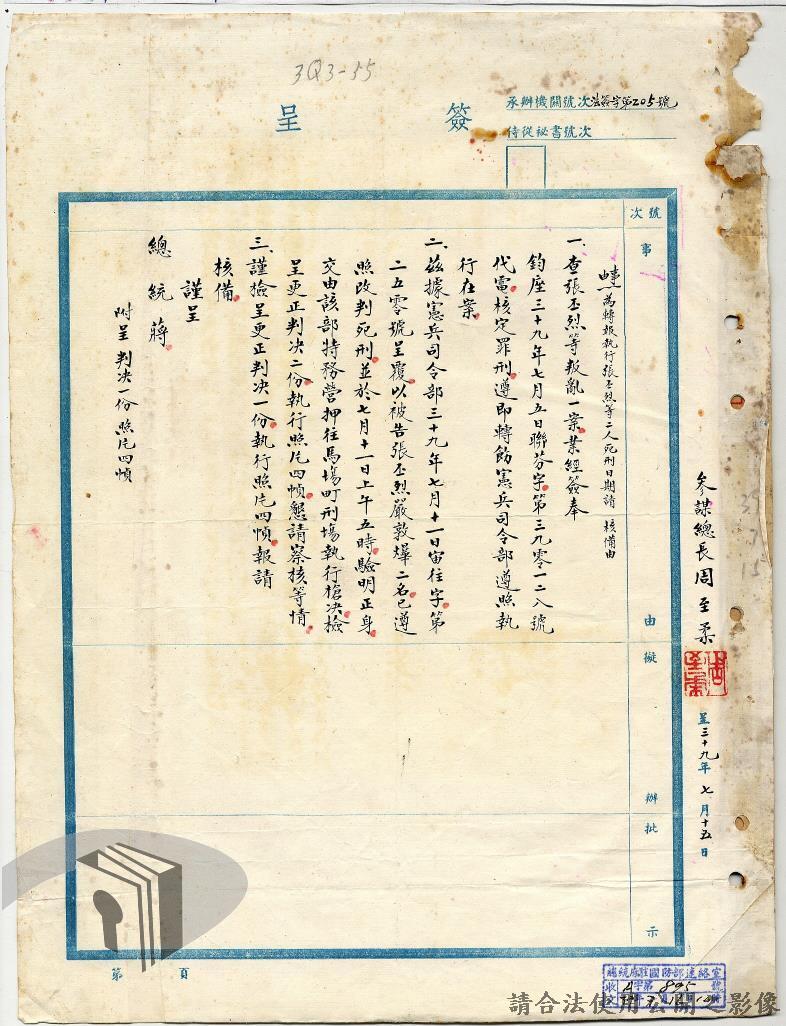 3Q3-55
承辦機關號次法簽字第205號
侍從祕書號次
簽呈
號次
事由
擬辦
批示
事由 為轉報執行張丕烈等二人死刑日期請 核備由
一、查張丕烈等叛亂一案業經簽奉
鈞座三十九年七月五日聯芬字第三九零一二八號
代電核定罪刑遵即轉飭憲兵司令部遵照執
行在案
二、茲據憲兵司令部三十九年七月十一日宙往字第
二五零號呈覆以被告張丕烈嚴敦燁二名已遵
照改判死刑並於七月十一日上午五時驗明正身
交由該部特務營押往馬場町刑場執行槍決檢
呈更正判決二份執行照片四幀懇請察核等情
三、謹檢呈更正判決一份執行照片四幀報請
核備
謹呈
總統蔣
附呈判決一份照片四幀
參謀總長周至柔
呈三十九年七月十五日
第 頁
總統府駐國防部連絡室
收 字第895號
請合法使用公開之影像